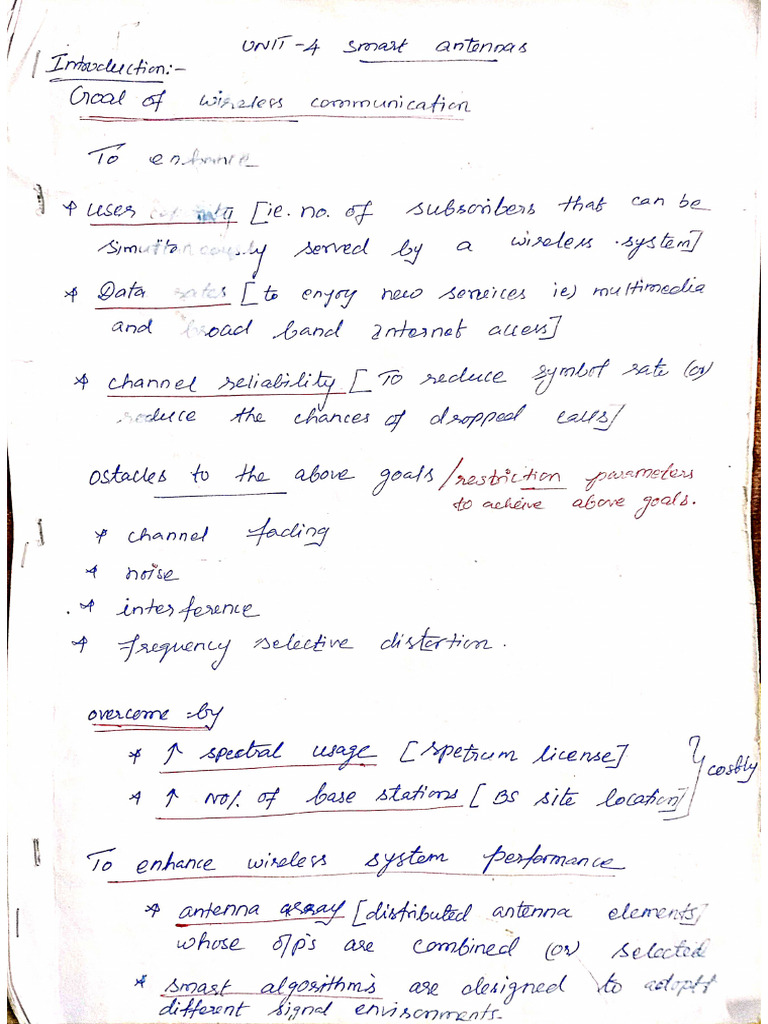 UNIT-4 smart antennas
Introduction:-
Goal of wireless communication
To enhance
* user [ie. no. of subscribers that can be
simultaneously served by a wireless system]
* Data rates [to enjoy new services ie) multimedia
and broad band internet access]
* channel reliability [To reduce symbol rate (or)
reduce the chances of dropped calls]
Ostacles to the above goals /restriction parameters
to achieve above goals.
* channel fading
* noise
* interference
* frequency selective distortion.
overcome by
* ↑ spectral usage [spetrum license]
* ↑ No/. of base stations [BS site location]
} costly
To enhance wireless system performance
* antenna array [distributed antenna elements]
whose o/p's are combined (or) selected
* smart algorithm's are designed to adopt
different signal environments.